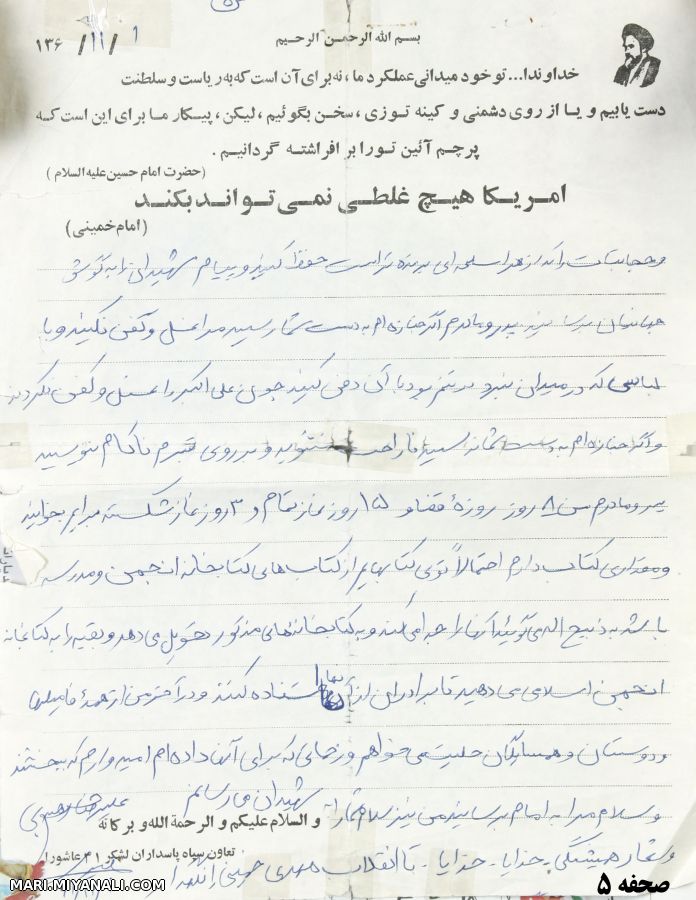 بسم الله الرحمن الرحیم
۱ / ۱۱ / ۱۳۶
خداوندا... تو خود میدانی عملکرد ما، نه برای آن است که به ریاست و سلطنت
دست یابیم و یا از روی دشمنی و کینه توزی، سخن بگوئیم، لیکن، پیکار ما برای این است که
پرچم آئین تو را بر افراشته گردانیم.
(حضرت امام حسین علیه السلام)
امریکا هیچ غلطی نمی تواند بکند
(امام خمینی)
و حجابتان را که از هر اسلحه ای برنده تر است حفظ کنید و پیام شهیدان را به گوش
جهانیان برسانید پدر و مادرم اگر جنازه ام به دست شما رسید مرا غسل و کفن نکنید و با
لباسی که در میدان نبرد بر تنم بود با آن دفن کنید چون علی اکبر را غسل و کفن نکردند
و اگر جنازه ام به دست شما نرسید ناراحت نشوید و بر روی قبرم ناکام ننویسید
پدر و مادرم من ۸ روز روزهٔ قضا و ۱۵ روز نماز تمام و ۳ روز نماز شکسته برایم بخوانید
و مقداری کتاب دارم احتمالاً توی کتابهایم از کتاب های کتابخانه انجمن و مدرسه
باشد به ذبیح اله می گوئید آنها را جدا می کند و به کتابخانه های مذکور تحویل می دهد و بقیه را به کتابخانه
انجمن اسلامی می دهید تا برادران از آنها استفاده کنند و در آخر من از همهٔ فامیلها
و دوستان و همسایگان حلیت می خواهم و زحماتی که برای آنها داده ام امیدوارم که ببخشند
و سلام مرا به امام برسانید من نیز سلام شما را به شهیدان می رسانم
و السلام علیکم و الرحمة الله و برکاته
و شعار همیشگی خدایا - خدایا - تا انقلاب مهدی خمینی را نگهدار
تعاون سپاه پاسداران لشکر ۴۱ عاشورا
صفحه ۵
MARI.MIYANALI.COM